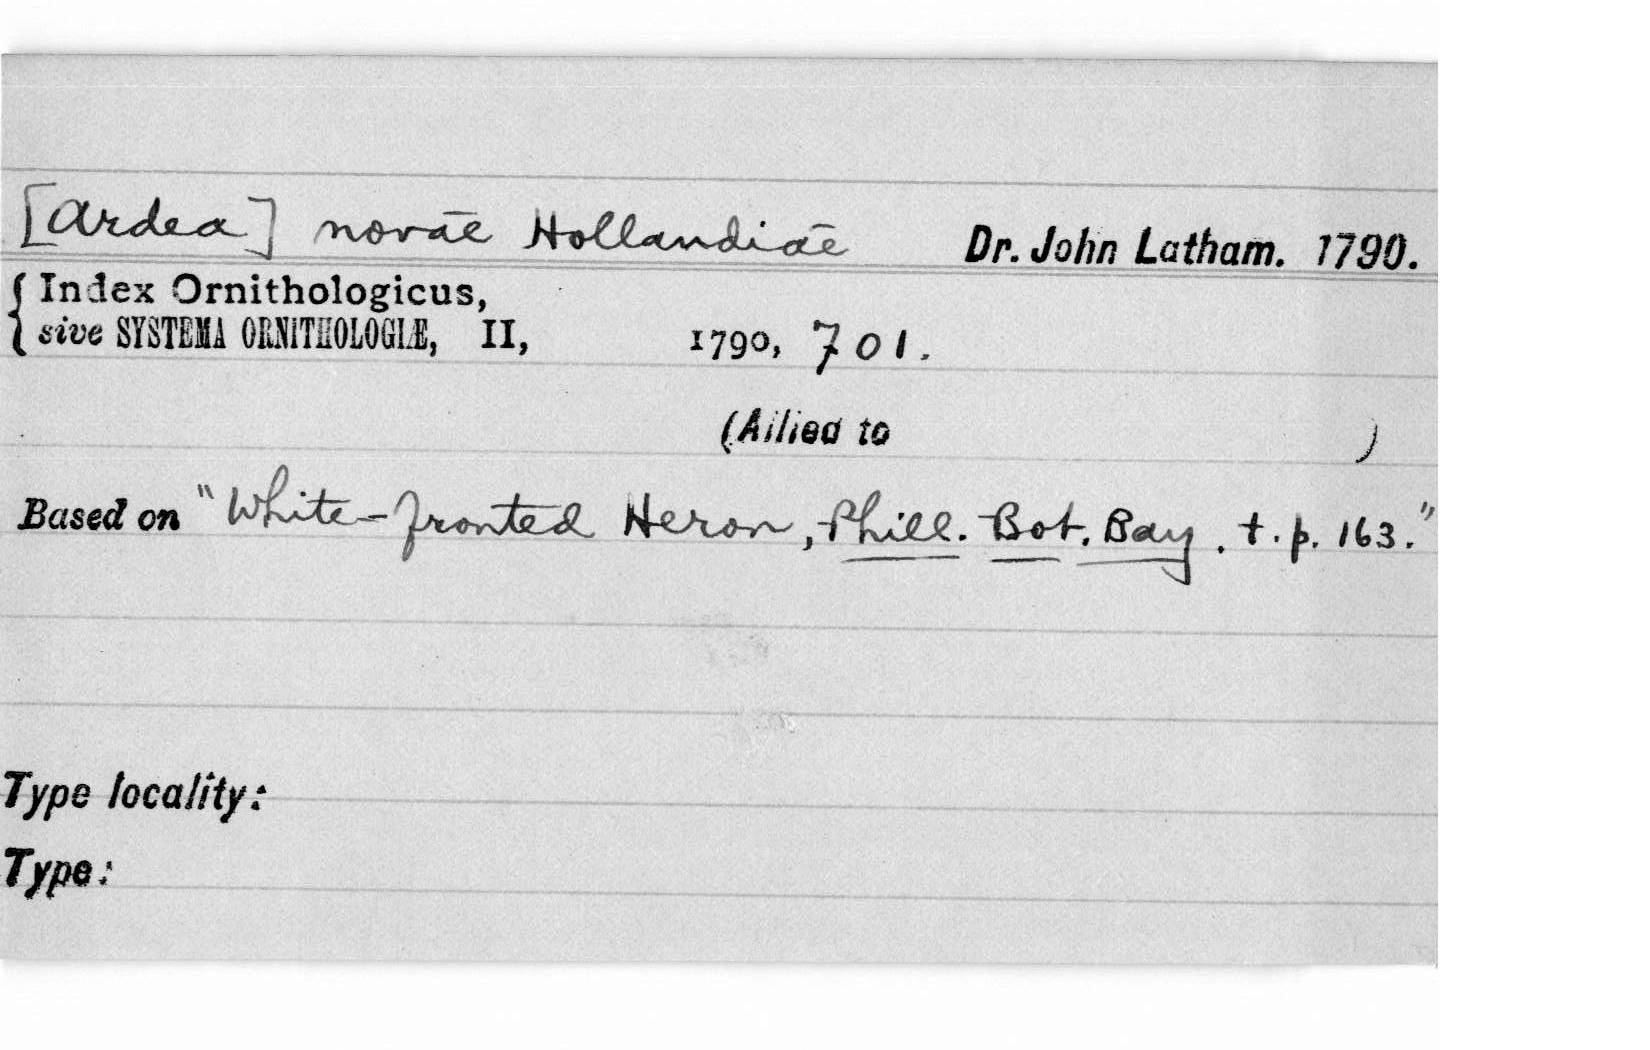 [Ardea] novāe Hollandiāe Dr. John Latham. 1790.
Index Ornithologicus,
sive SYSTEMA ORNITHOLOGIÆ, II, 1790, 701.
(Allied to )
Based on "White-fronted Heron, Phill. Bot. Bay. t. p. 163."
Type locality:
Type: